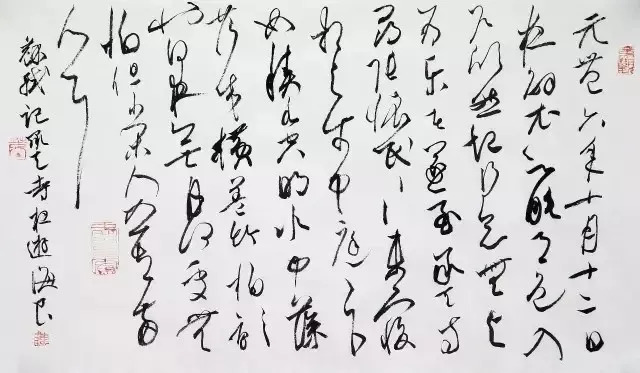 元豐六年十月十二日
夜解衣欲睡月色入
户欣然起行念無与
为乐者遂至承天寺
尋张懷民〻亦未寢
相与步中庭〻下
如積水空明水中藻
荇交横蓋竹柏影
也何夜無月何處無
柏但少閑人如吾两
人耳
蘇軾記承天寺夜遊 海